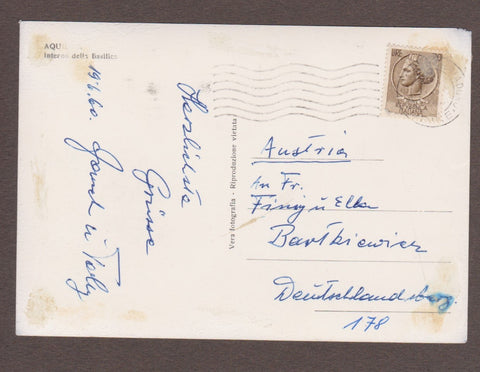 AQUI
Interno della Basilica
19.6.60.
Herzlichste
Grüsse
Vera fotografia - Riproduzione vietata
Austria
An Fr.
Finy u Ella
Bartkiewicz
Deutschlandsberg.
178